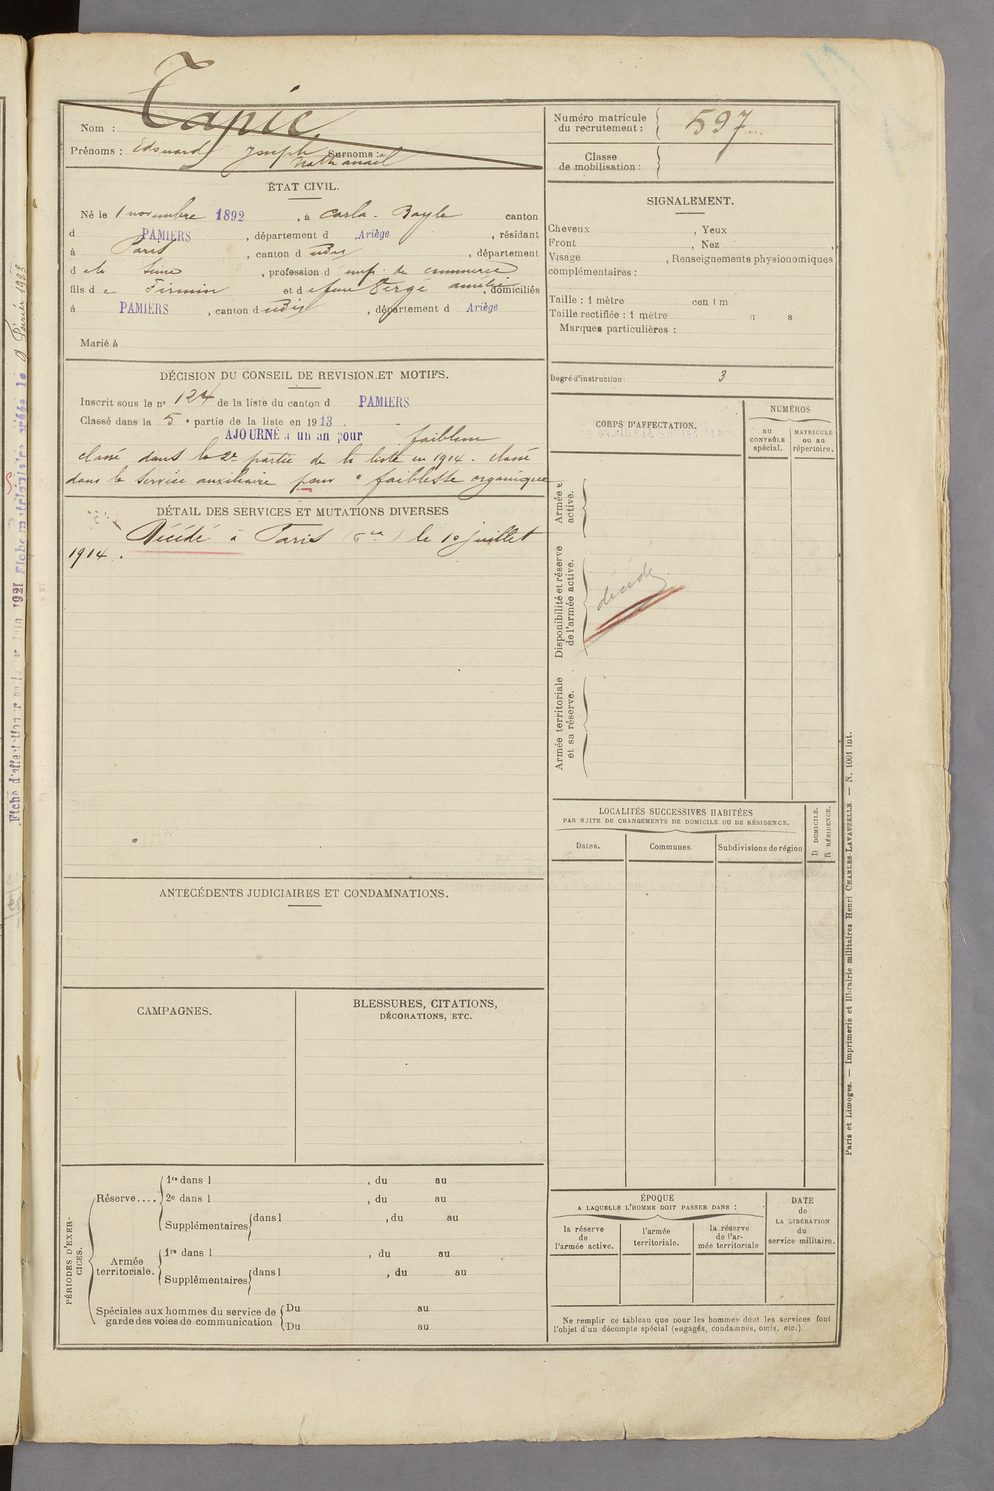 Nom : Tapie
Prénoms : Edouard Joseph Surnoms :
Nathanaël
ÉTAT CIVIL.
Né le 1 novembre 1892, à Carla-Bayle canton
d PAMIERS, département d Ariège, résidant
à Paris, canton d udis, département
d e la Seine, profession d empl. de commerce
fils d e Firmin et d e feue Vergé amélie, domiciliés
à PAMIERS, canton d udis, département d Ariège
Marié à
DÉCISION DU CONSEIL DE REVISION ET MOTIFS.
Inscrit sous le n° 124 de la liste du canton d PAMIERS
Classé dans la 5e partie de la liste en 1913.
AJOURNÉ à un an pour faiblesse
classé dans la 2e partie de la liste en 1914. Classé
dans le service auxiliaire pour " faiblesse organique
DÉTAIL DES SERVICES ET MUTATIONS DIVERSES
Décédé à Paris ( ) le 10 juillet
1914.
ANTÉCÉDENTS JUDICIAIRES ET CONDAMNATIONS.
CAMPAGNES.
BLESSURES, CITATIONS,
DÉCORATIONS, ETC.
PÉRIODES D'EXER-
CICES.
Réserve....
1re dans l , du au
2e dans l , du au
Supplémentaires dans l , du au
Armée
territoriale.
1re dans l , du au
Supplémentaires dans l , du au
Spéciales aux hommes du service de
garde des voies de communication
Du au
Du au
Numéro matricule
du recrutement : 597
Classe
de mobilisation :
SIGNALEMENT.
Cheveux , Yeux
Front , Nez ,
Visage , Renseignements physionomiques
complémentaires :
Taille : 1 mètre centm
Taille rectifiée : 1 mètre
Marques particulières :
Degré d'instruction : 3
CORPS D'AFFECTATION.
NUMÉROS
AU
CONTRÔLE
spécial.
MATRICULE
ou au
répertoire.
Armée
active.
Disponibilité et réserve
de l'armée active.
décédé
Armée territoriale
et sa réserve.
LOCALITÉS SUCCESSIVES HABITÉES
PAR SUITE DE CHANGEMENTS DE DOMICILE OU DE RÉSIDENCE.
D. DOMICILE.
R. RÉSIDENCE.
Dates.
Communes.
Subdivisions de région
ÉPOQUE
A LAQUELLE L'HOMME DOIT PASSER DANS :
la réserve
de
l'armée active.
l'armée
territoriale.
la réserve
de l'ar-
mée territoriale
DATE
de
LA LIBÉRATION
du
service militaire.
Ne remplir ce tableau que pour les hommes dont les services font
l'objet d'un décompte spécial (engagés, condamnés, omis, etc.).
Paris et Limoges. — Imprimerie et librairie militaires Henri CHARLES-LAVAUZELLE. — N. 1001 int.